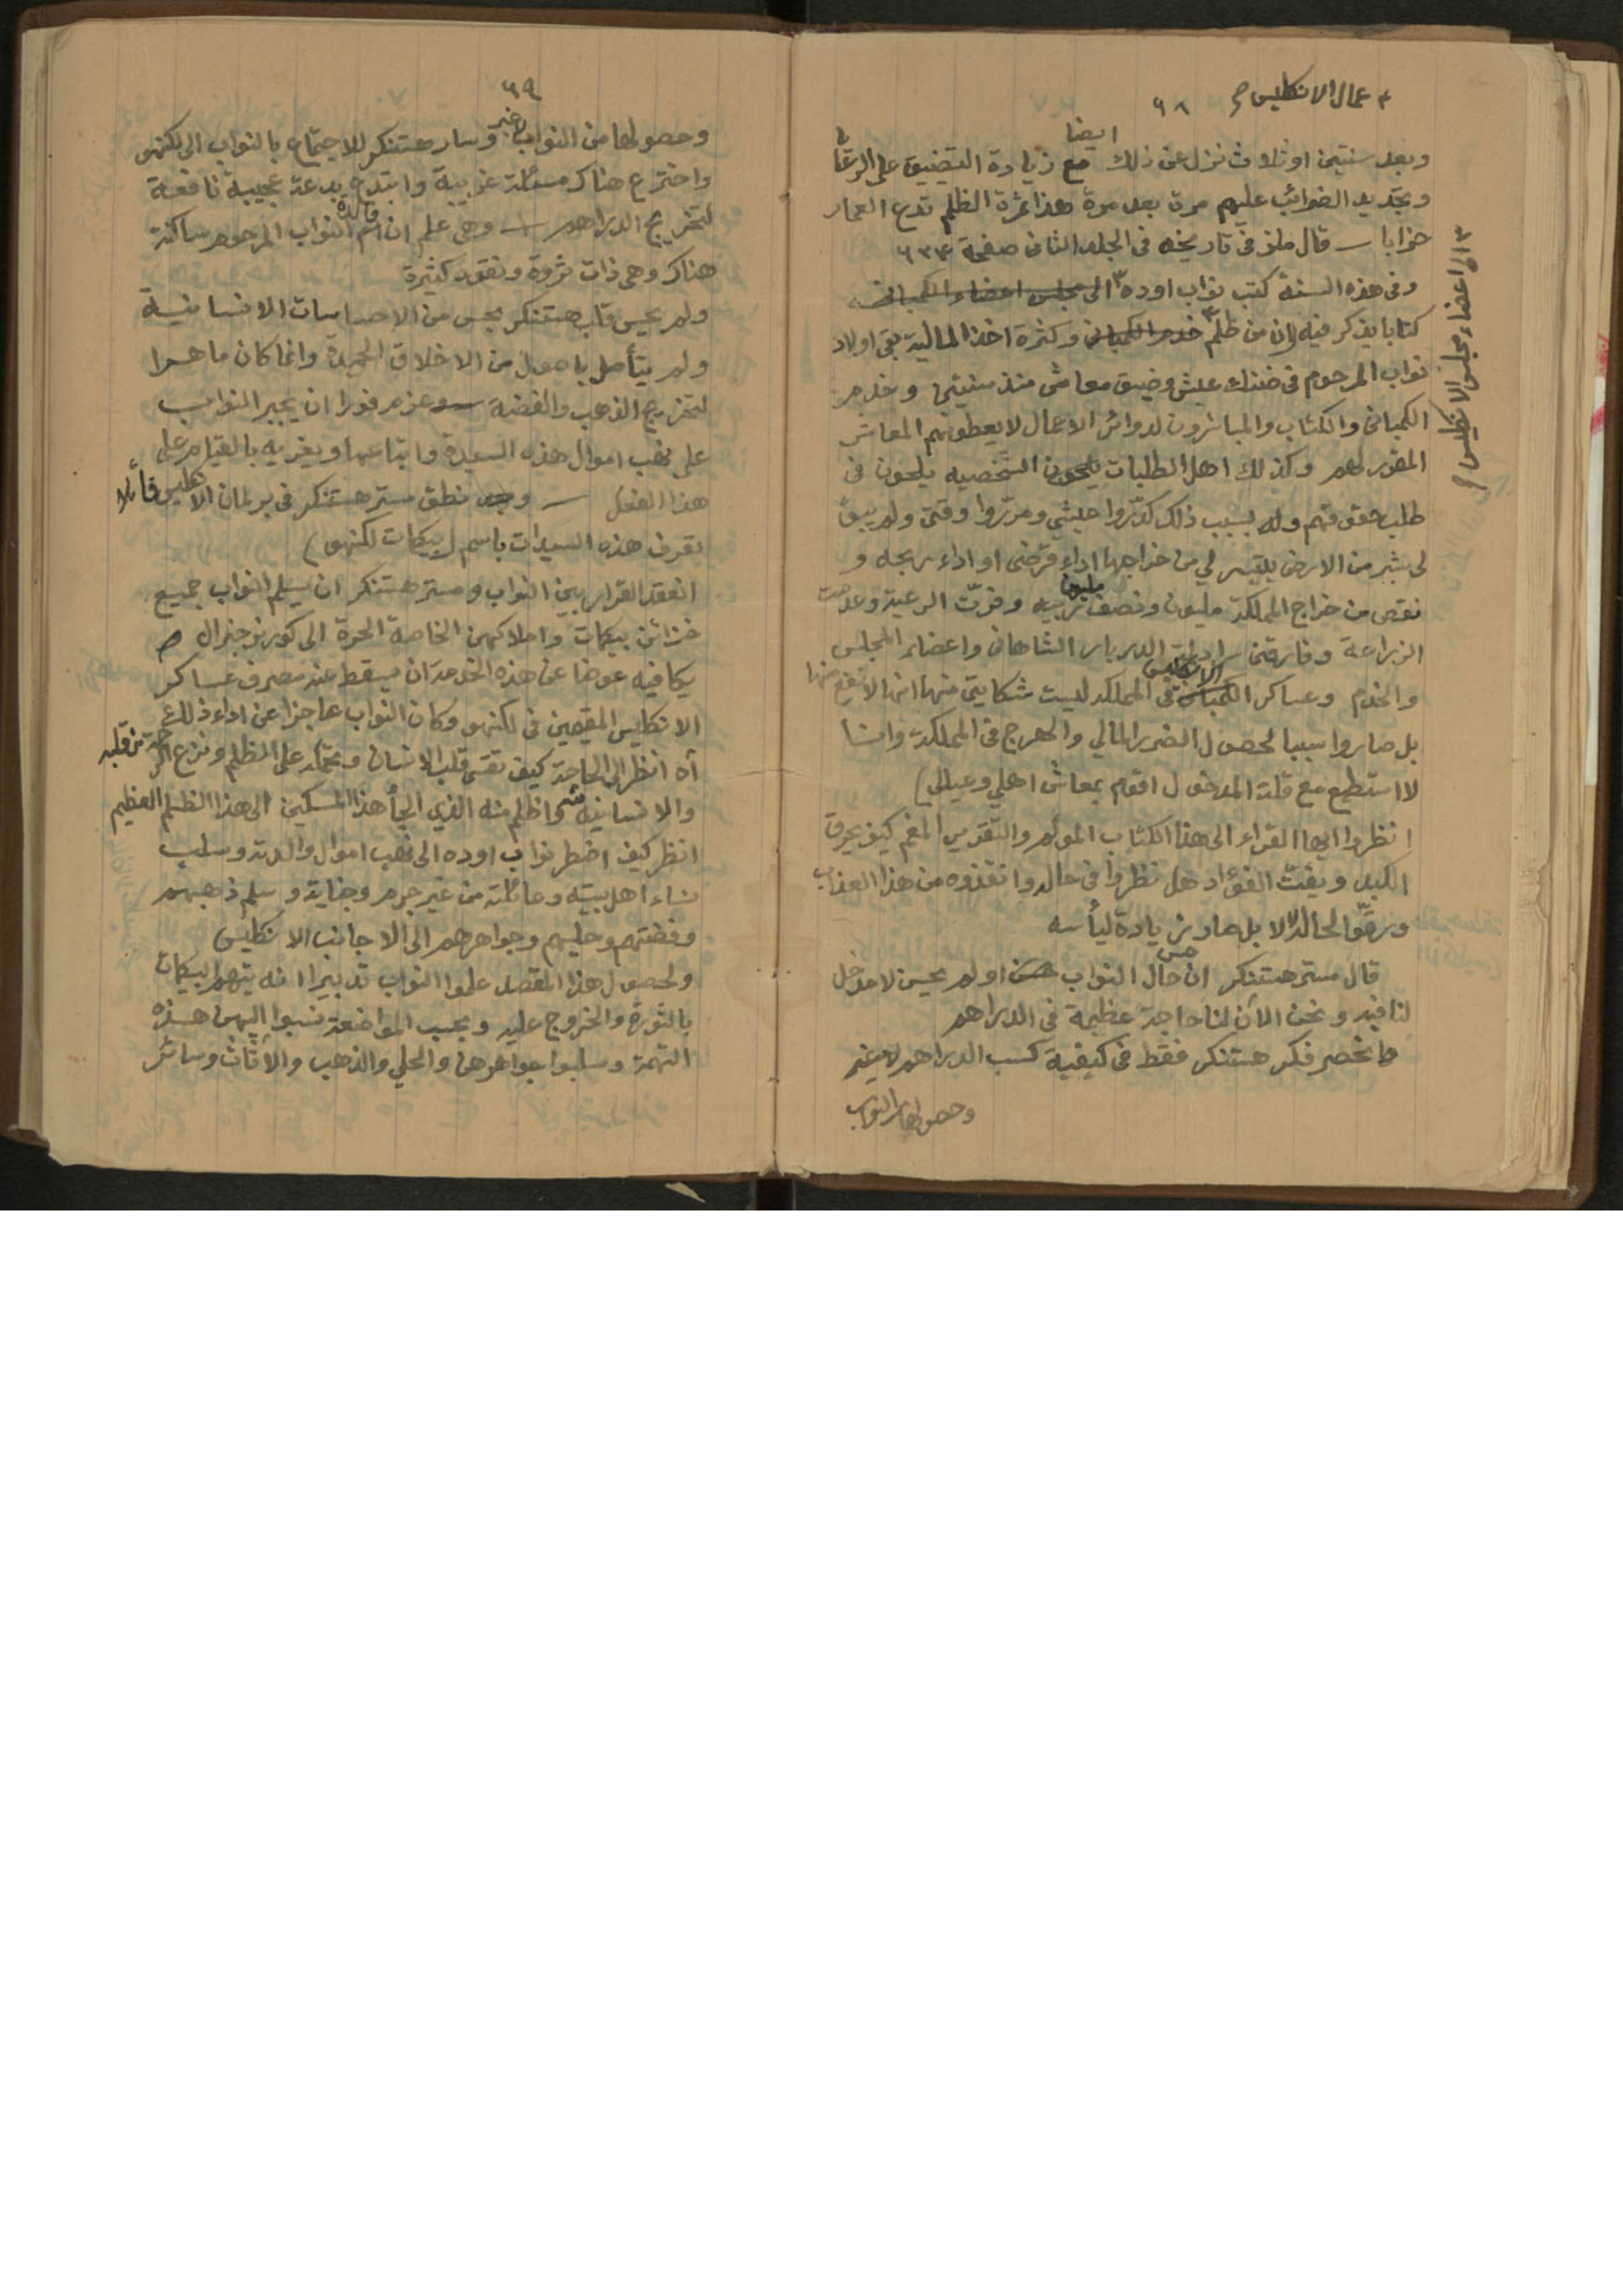 ٣ عمال الانكليس صح
٦٨
وبعد سنتين او ثلاث نزل عن ذلك ايضا مع زيادة التضييق على الرعايا
وتجديد الضرائب عليهم مرة بعد مرة هذا ثمرة الظلم تدع العمار
خرابا ــ قال ملز في تاريخه في الجلد الثاني صفحة ٦٢٤
وفي هذه السنة كتب نواب اوده ٢ الى مجلس اعضاء الكمباني
كتابا يذكر فيه (ان من ظلم ٣ خدم الكمباني وكثرة اخذ المالية بقى اولاد
نواب المرحوم في ضنك عيش وضيق معاش منذ سنتين وخدم
الكمباني والكتاب والمباشرون لدوائر الاعمال لا يعطونهم المعاش
المقرر لهم وكذلك اهل الطلبات يلحون الشخصيه يلحون في
طلب حقوقهم وله بسبب ذلك كدّروا عيشي ومرّروا وقتي ولم يبق
لي شبر من الارض يتيسر لي من خراجها اداء قرضي او اداء ربحه و
نقص من خراج المملكة مليون ونصف مليون ربيه وفرّت الرعية وعدمت
الزراعة وفارقني الدربار الشاهاني واعضاء المجلس
والخدم وعساكر الكمباني الانكليس في المملكة ليست شكايتي منها انها لا نفع منها
بل صاروا سببا لحصول الضرر المالي والهرج في المملكة وانا
لا استطيع مع قلة المدخول اقوم بمعاش اهلي وعيالي)
انظروا ايها القراء الى هذا الكتاب المولم والتقرير المغم كيف يحرق
الكبد ويفتّ الفؤاد هل نظروا في حاله وانقذوه من هذا العذاب
ورقّوا لحاله لا لا بل صار زيادة ليأسه
قال مستر هستنكر ان حال النواب حسن او لم يحسن لا مدخل
لنا فيه ونحن الآن لنا حاجة عظيمة في الدراهم
وانحصر فكر هستنكر فقط في كيفية كسب الدراهم لا غير
وحصولها من النواب
٢ الى اعضاء مجلس الانكليس صح
٦٩
وحصولها من النواب لا غير وسار هستنكر للاجتماع بالنواب الى لكنهو
واخترع هناك مسئلة غريبة وابتدع بدعة عجيبة نافعة
لتخريج الدراهم ــ وهي علم ان ام والدة النواب المرحوم ساكنة
هناك وهي ذات ثروة ونقود كثيرة
ولم يحس قلب هستنكر بحس من الاحساسات الانسانية
ولم يتأمل باصول من الاخلاق الحميدة وانما كان ماهرا
لتخريج الذهب والفضة ــ وعزم فورا ان يجبر النواب
على نهب اموال هذه السيدة واتباعها ويغريه بالقيام على
هذا الفعل ــ وبعد نطق مستر هستنكر في برلمان الانكليس قائلا
تعرف هذه السيدات باسم (بيكمات لكنهو)
انعقد القرار بين النواب ومستر هستنكر ان يسلم النواب جميع
خزائن بيكمات واملاكهن الخاصة الحرة الى كورنر جنرال
يكافيه عوضا عن هذه الخدمة ان يسقط عنه مصرف عساكر
الانكليس المقيمين في لكنهو وكان النواب عاجزا عن اداء ذلك
آه انظر الى الحاجة كيف تقسى قلب الانسان وتحمله على الظلم ونزع الرحمة من قلبه
والانسانية واظلم منه الذي الجأ هذا المسكين الى هذا الظلم العظيم
انظر كيف اضطر نواب اوده الى نهب اموال والدته وسلب
نساء اهل بيته وعائلته من غير جرم وجناية وسلم ذهبهم
وفضتهم وحليهم وجواهرهم الى الاجانب الانكليس
ولحصول هذا المقصد علموا النواب تدبيرا انه يتهم البيكمات
بالثورة والخروج عليه وبحسب المواضعة نسبوا اليهن هذه
التهمة وسلبوا جواهرهن والحلي والذهب والاثاث وسائر